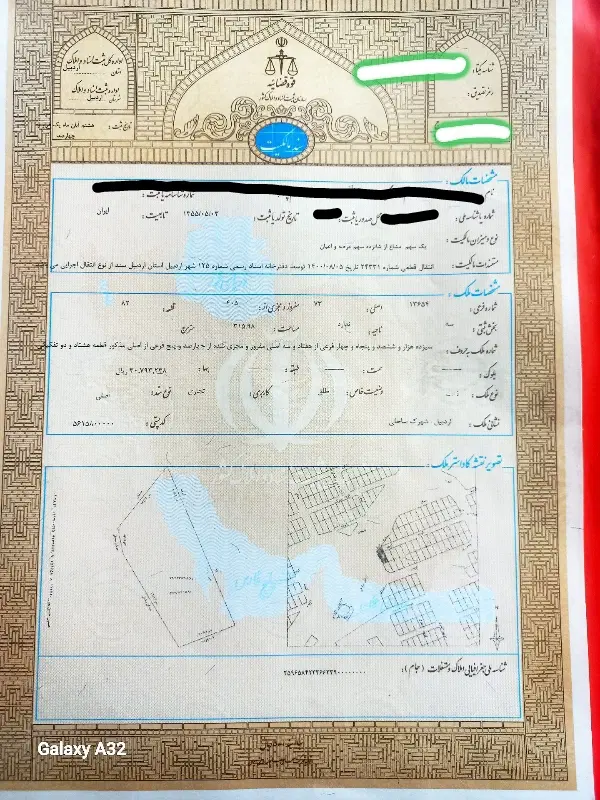 اداره کل ثبت اسناد و املاک
استان اردبیل
اداره ثبت اسناد و املاک
اردبیل
تاریخ ثبت :
هشتم آبان ماه یک
چهارصد
قوه قضاییه
سازمان ثبت اسناد و املاک کشور
سند مالکیت
شناسه یکتا :
رمز تصدیق :
مشخصات مالک :
نام
شماره شناسنامه یا ثبت :
شماره یا شناسه ملی :
محل صدور یا ثبت :
تاریخ تولد یا ثبت :
۱۳۵۵/۰۵/۰۳
تابعیت :
ایران
نوع و میزان مالکیت :
یک سهم مشاع از شانزده سهم عرصه و اعیان
مستندات مالکیت :
انتقال قطعی شماره ۲۴۳۳۱ تاریخ ۱۴۰۰/۰۸/۰۵ توسط دفترخانه اسناد رسمی شماره ۱۲۵ شهر اردبیل استان اردبیل سند از نوع انتقال اجرایی می باشد
مشخصات ملک :
شماره فرعی :
۱۳۶۵۴
اصلی :
۷۳
مفروز و مجزی از :
۴۰۵
قطعه :
۸۲
بخش ثبتی :
سه
ناحیه :
ندارد
مساحت :
۳۱۵.۹۸
مترمربع
شماره ملک به حروف :
سیزده هزار و ششصد و پنجاه و چهار فرعی از هفتاد و سه اصلی مفروز و مجزی شده از چهارصد و پنج فرعی از اصلی مذکور قطعه هشتاد و دو تفکیکی
بلوک :
سمت :
طبقه :
بها :
۲۰,۷۹۳,۲۳۸ ریال
نوع ملک :
وضعیت خاص :
مطلق
کاربری :
تجاری
نوع سند :
اصلی
نشانی ملک :
اردبیل شهرک ساحلی
کد پستی :
۵۶۱۵۱۰۰۰۰۰
تصویر نقشه کاداستر ملک :
شناسه ملی جغرافیایی املاک و مستغلات ( جام ) :
Galaxy A32